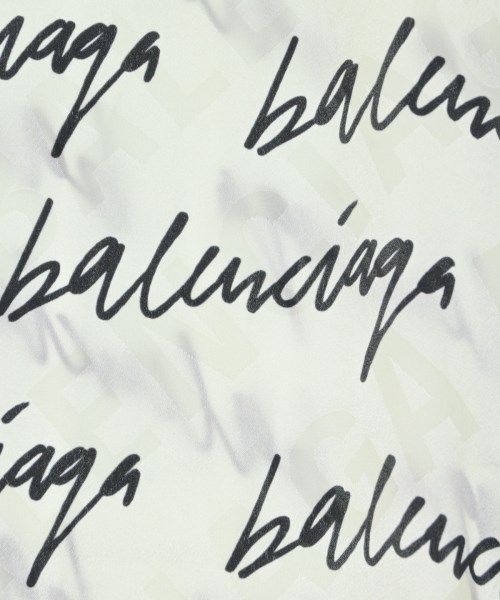 iaga balen
balenciaga
iaga balenc